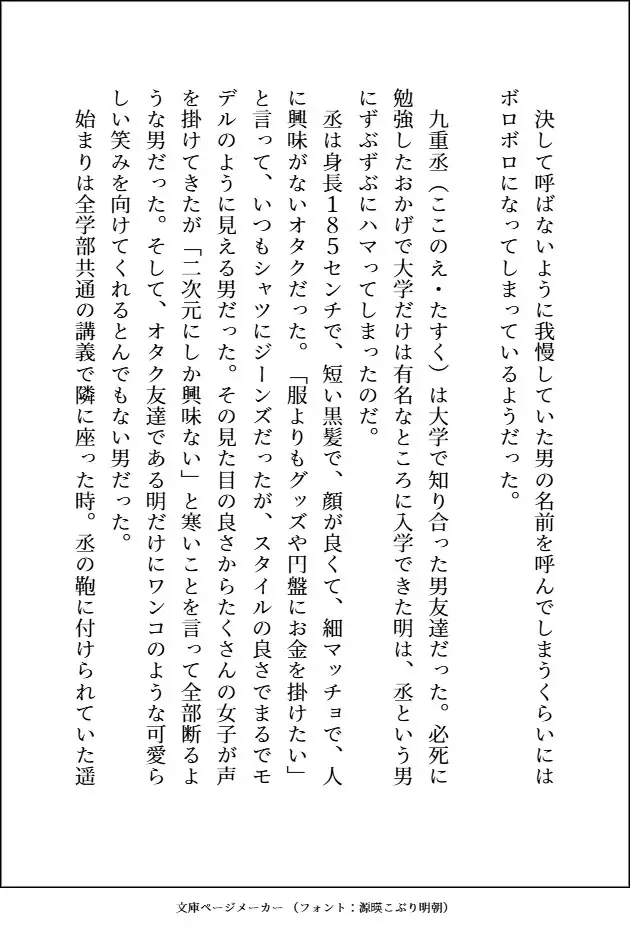 決して呼ばないように我慢していた男の名前を呼んでしまうくらいには
ボロボロになってしまっているようだった。
　九重丞（ここのえ・たすく）は大学で知り合った男友達だった。必死に
勉強したおかげで大学だけは有名なところに入学できた明は、丞という男
にずぶずぶにハマってしまったのだ。
　丞は身長１８５センチで、短い黒髪で、顔が良くて、細マッチョで、人
に興味がないオタクだった。「服よりもグッズや円盤にお金を掛けたい」
と言って、いつもシャツにジーンズだったが、スタイルの良さでまるでモ
デルのように見える男だった。その見た目の良さからたくさんの女子が声
を掛けてきたが「二次元にしか興味ない」と寒いことを言って全部断るよ
うな男だった。そして、オタク友達である明だけにワンコのような可愛ら
しい笑みを向けてくれるとんでもない男だった。
　始まりは全学部共通の講義で隣に座った時。丞の鞄に付けられていた遥
文庫ページメーカー（フォント：源暎こぶり明朝）